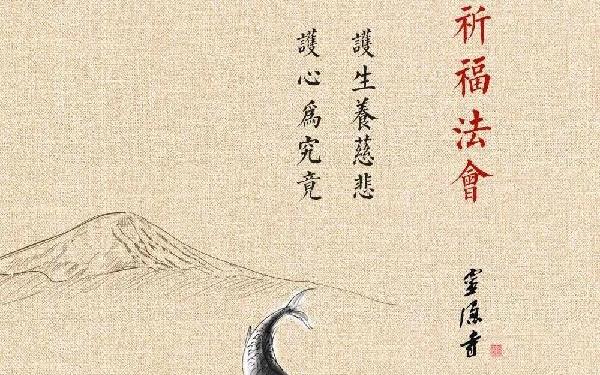 祈福法會
護生養慈悲
護心爲究竟